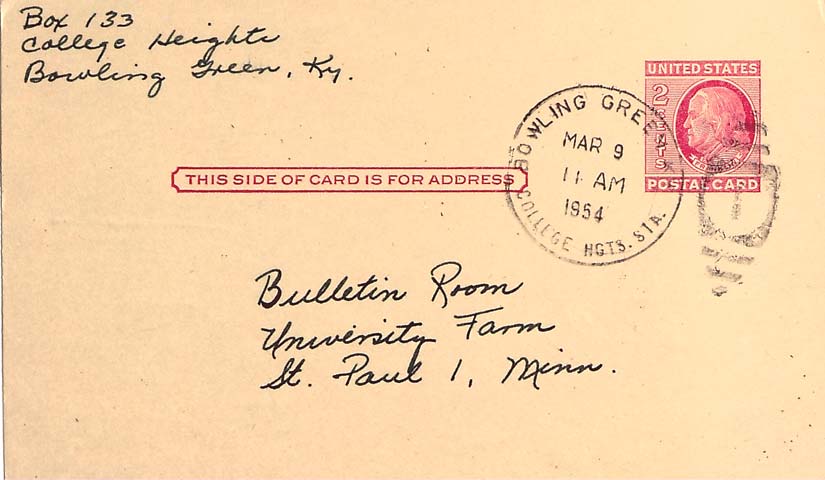 Box 133
College Heights
Bowling Green, Ky.
UNITED STATES
2 CENTS
FRANKLIN
POSTAL CARD
BOWLING GREE
MAR 9
11 AM
1954
COLLEGE HGTS. STA.
THIS SIDE OF CARD IS FOR ADDRESS
Bulletin Room
University Farm
St. Paul 1, Minn.